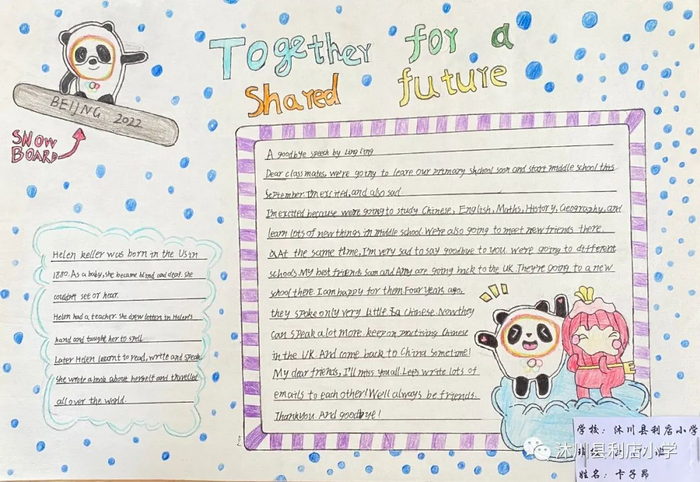 Together for a
Shared future
BEIJING 2022
SNOW
BOARD
A goodbye speech by Ling Ling
Dear classmates, we're going to leare our primary shchool soon and start middle school this
September I'm excited, and also sad
I'm excited because we're going to study Chinese, English, Maths, History, Geography, and
learn lots of new things in middle school. We're also going to meet new friends there.
At the same time, I'm very sad to say goodbye to you. we're going to different
schools My best friends sam and Amy are going back to the UK. They're going to a new
school there. I am happy for then Four years ago,
they spoke only very little Chinese. Now they
can speak a lot more keep on practising Chinese
in the UK. And come back to China sometime!
My dear friends, I'll miss you all. Let's write lots of
emails to each other! We'll always be friends.
Thank you And goodbye!
Helen keller was born in the Us in
1880. As a baby, she became blind and deaf. she
couldn't see or hear.
Helen had a teacher. she drew letters in Helen's
hand and taught her to spell.
Later Helen learnt to read, write and speak
she wrote a book about herself and travelled
all over the world.
学校: 沐川县利店小学
姓名: 卞子昂
沐川县利店小学